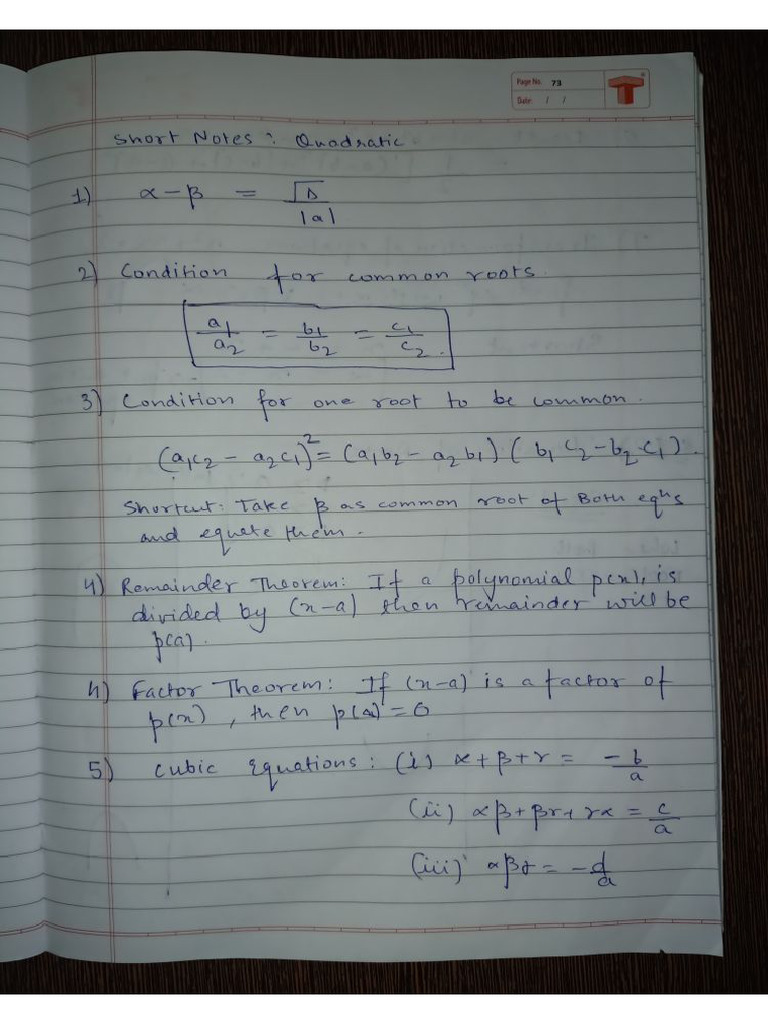 Page No. 73
Date: / /
T
Short Notes: Quadratic
1) α - β = √D / |a|
2) Condition for common roots.
a1/a2 = b1/b2 = c1/c2.
3) Condition for one root to be common.
(a1c2 - a2c1)² = (a1b2 - a2b1) (b1c2 - b2c1).
Shortcut: Take β as common root of Both eqns
and equete them.
4) Remainder Theorem: If a polynomial p(x), is
divided by (x-a) then remainder will be
p(a).
4) Factor Theorem: If (x-a) is a factor of
p(x), then p(a) = 0
5) Cubic Equations: (i) α + β + γ = -b/a
(ii) αβ + βγ + γα = c/a
(iii) αβγ = -d/a